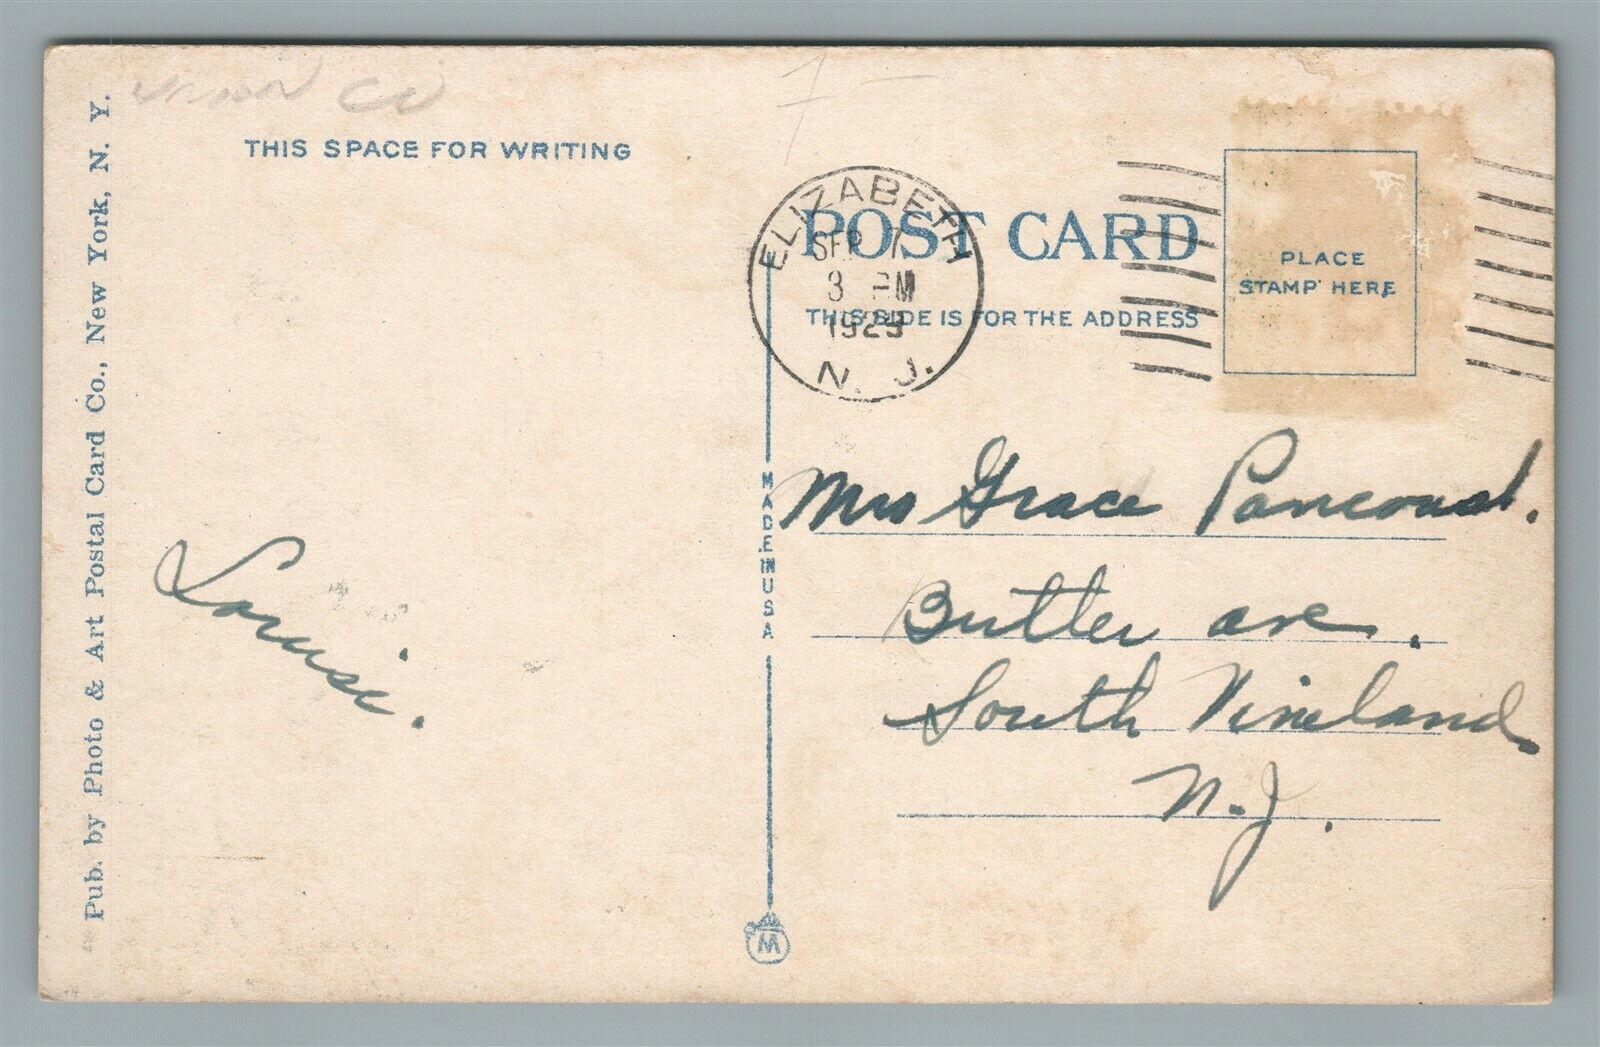 Pub. by Photo & Art Postal Card Co., New York, N. Y.
THIS SPACE FOR WRITING
Louise.
MADE IN USA
M
ELIZABETH
SEP 7
3 PM
1929
N. J.
POST CARD
THIS SIDE IS FOR THE ADDRESS
PLACE
STAMP HERE
Mrs Grace Pancoast.
Butler ave.
South Vineland
N.J.